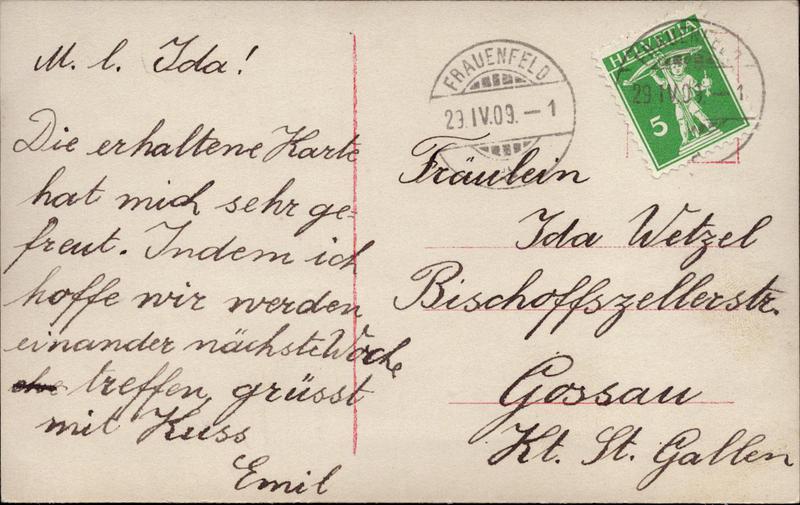 M. l. Ida!
Die erhaltene Karte
hat mich sehr ge-
freut. Indem ich
hoffe wir werden
einander nächste Woche
treffen, grüsst
mit Kuss
Emil
FRAUENFELD
29.IV.09.-1
HELVETIA
5
29.IV.09.-1
Fräulein
Ida Wetzel
Bischoffszellerstr.
Gossau
Kt. St. Gallen